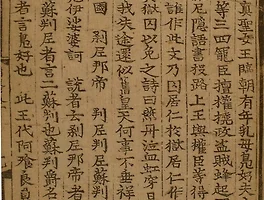 眞聖女王臨朝有年乳母鳧好夫
等三四寵臣擅權撓政盜賊蜂起
尼隱語書投路上王與權臣等得
誰作此文乃囚居仁於獄居仁作
獄囚以免之詩曰燕丹泣血虹穿日
我失途還似舊皇天何事不垂祥
國 刹尼那帝 判尼判尼蘇判
伊娑婆訶 說者云刹尼那帝者
蘇判尼者言二蘇判也蘇判爵名
者言鳧好也 此王代阿飱良員